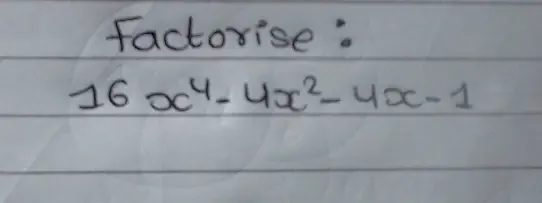 Factorise :
16x⁴ - 4x² - 4x - 1